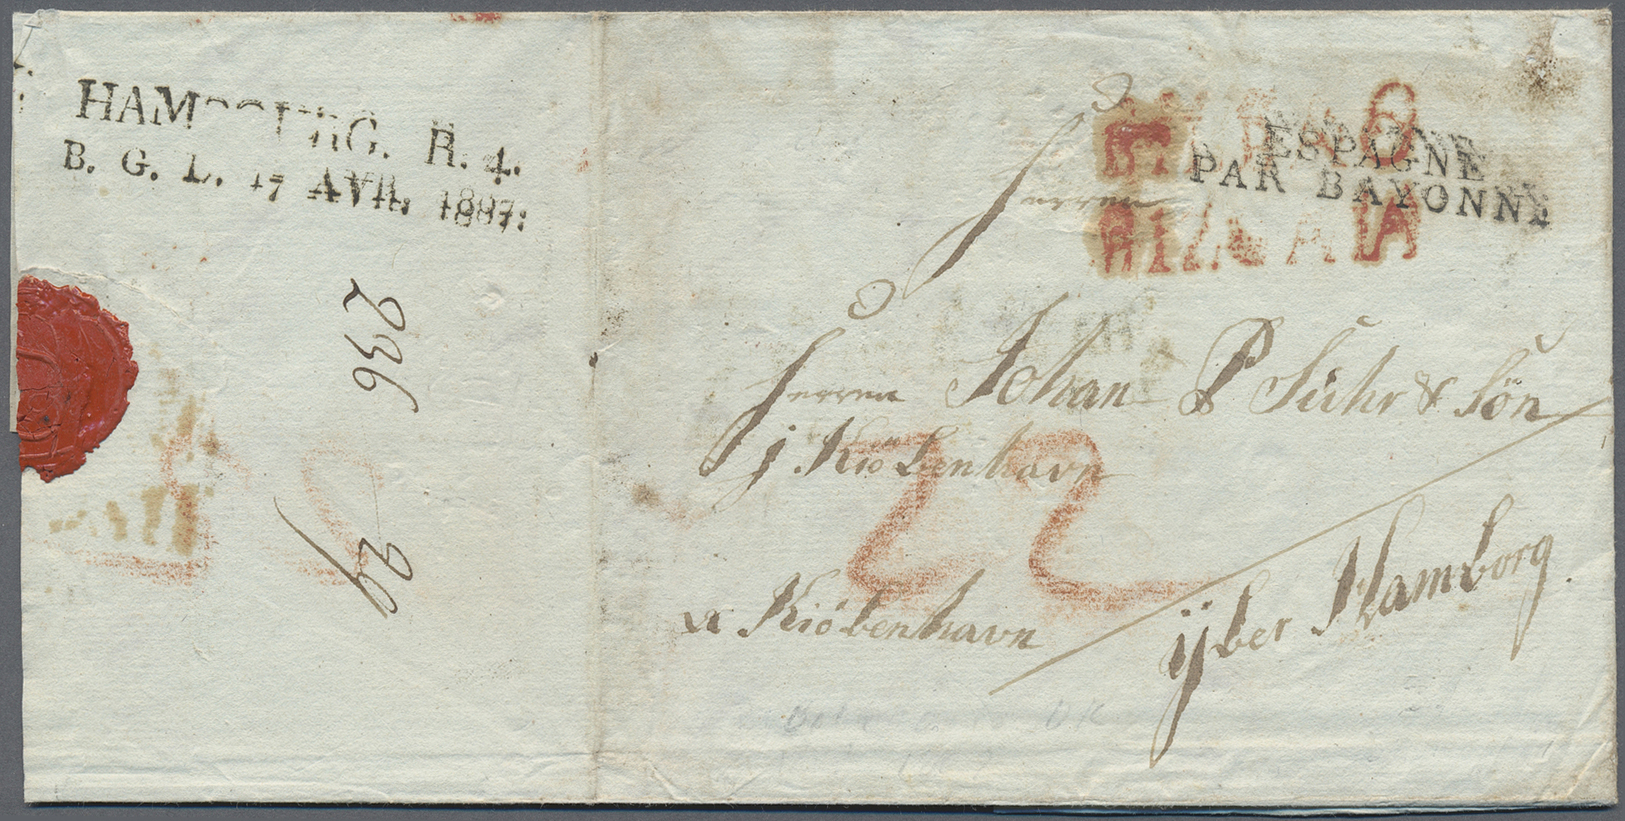 HAMBOURG. R. 4.
B. G. D. 17 AVIL 1887:
236
24
ESPAGNE
PAR BAYONNE
Herren
Herren Johan P Suhr & Sön
j. Kiöbenhavn
22
a Kiöbenhavn
ÿber Hamborg.